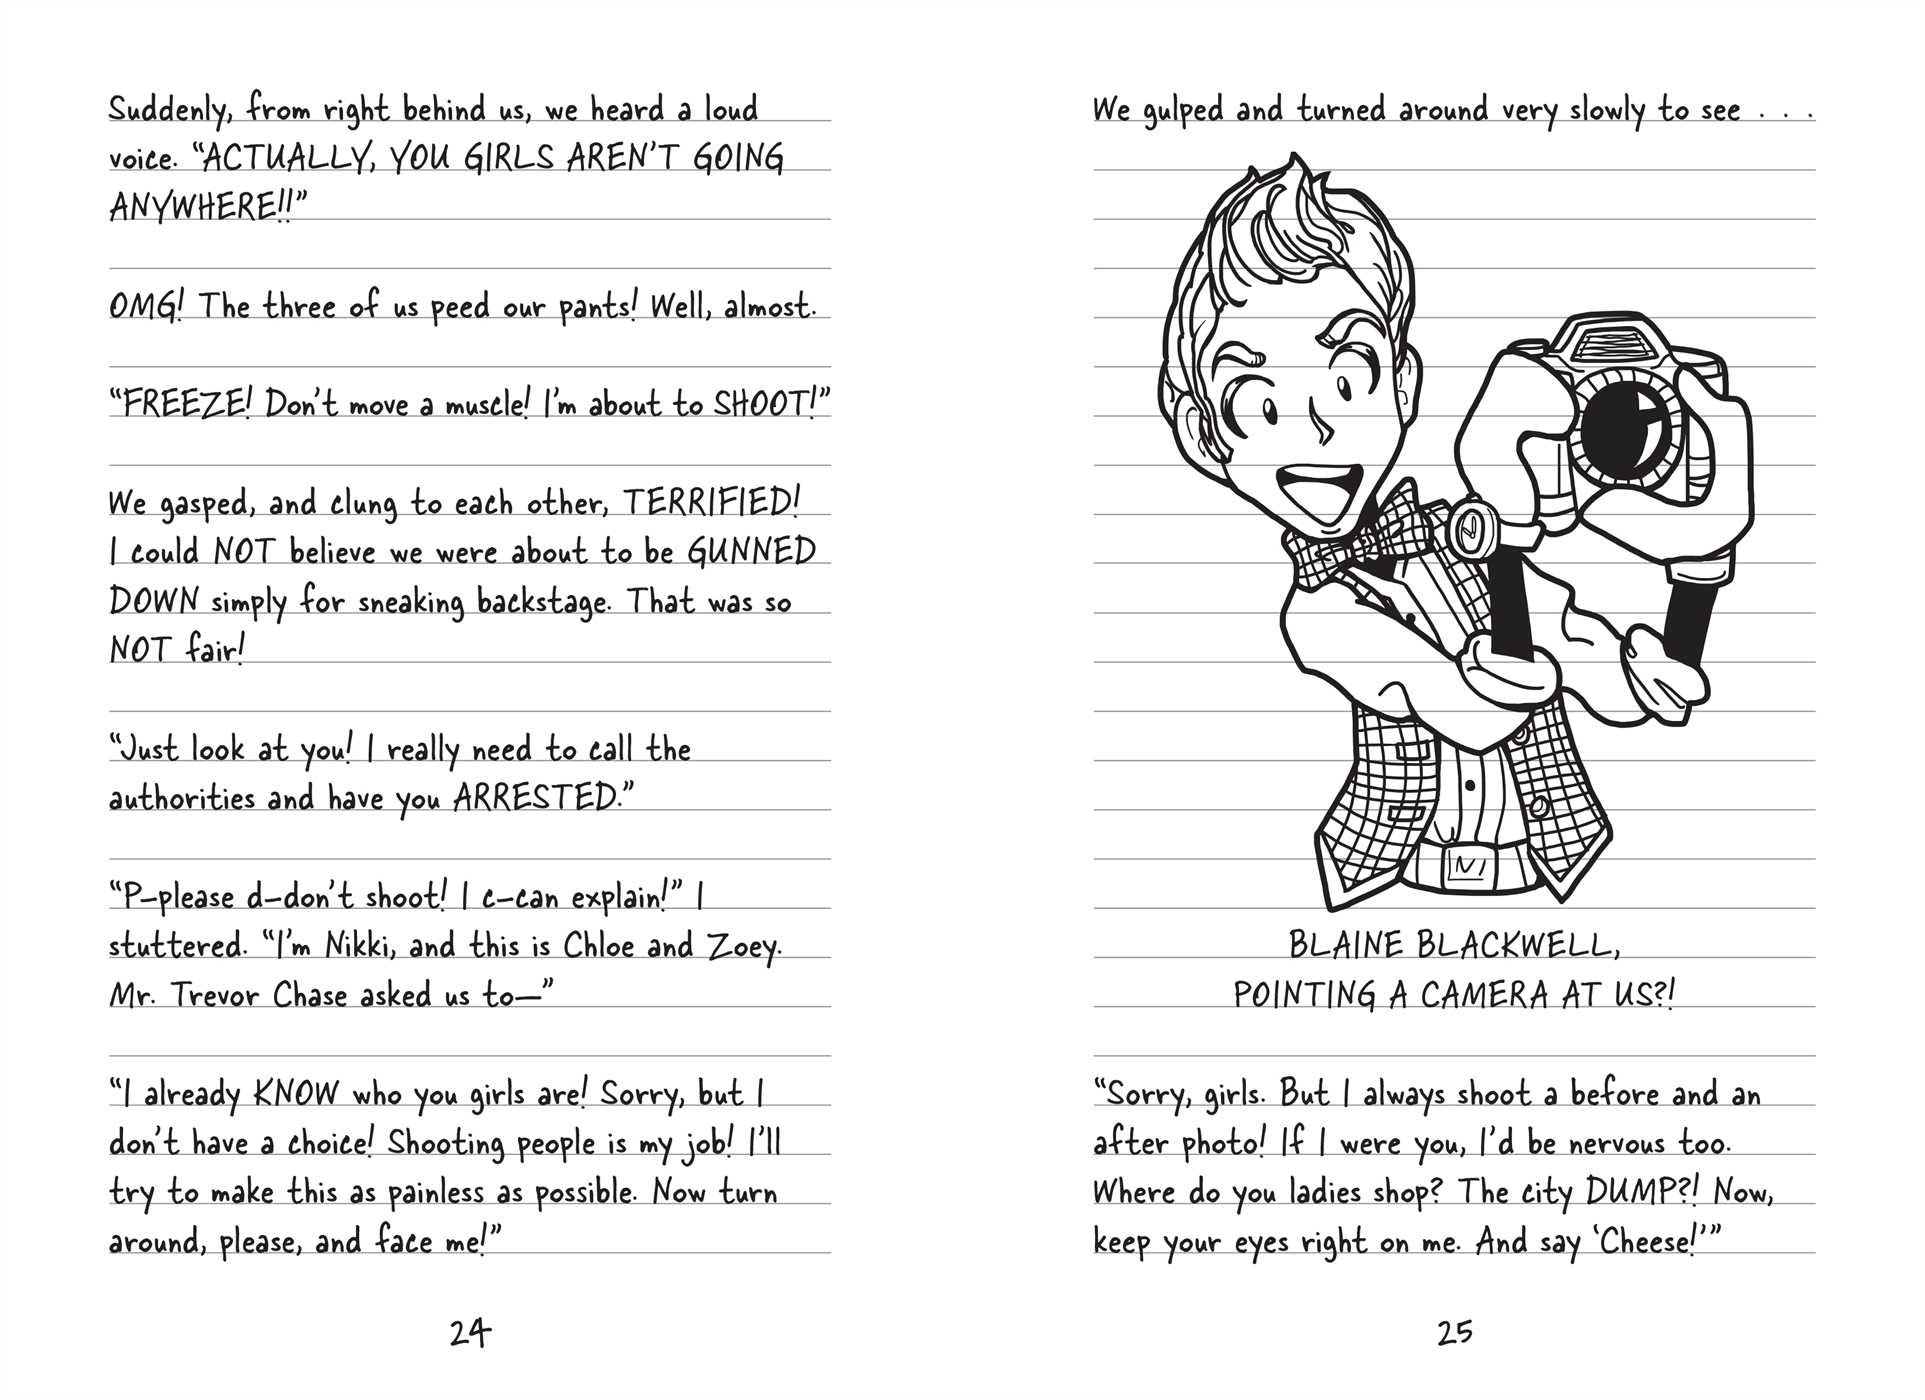 Suddenly, from right behind us, we heard a loud
voice. “ACTUALLY, YOU GIRLS AREN’T GOING
ANYWHERE!!”
OMG! The three of us peed our pants! Well, almost.
“FREEZE! Don’t move a muscle! I’m about to SHOOT!”
We gasped, and clung to each other, TERRIFIED!
I could NOT believe we were about to be GUNNED
DOWN simply for sneaking backstage. That was so
NOT fair!
“Just look at you! I really need to call the
authorities and have you ARRESTED.”
“P–please d–don’t shoot! I c–can explain!” I
stuttered. “I’m Nikki, and this is Chloe and Zoey.
Mr. Trevor Chase asked us to—”
“I already KNOW who you girls are! Sorry, but I
don’t have a choice! Shooting people is my job! I’ll
try to make this as painless as possible. Now turn
around, please, and face me!”
24
We gulped and turned around very slowly to see . . .
BLAINE BLACKWELL,
POINTING A CAMERA AT US?!
“Sorry, girls. But I always shoot a before and an
after photo! If I were you, I’d be nervous too.
Where do you ladies shop? The city DUMP?! Now,
keep your eyes right on me. And say ‘Cheese!’”
25